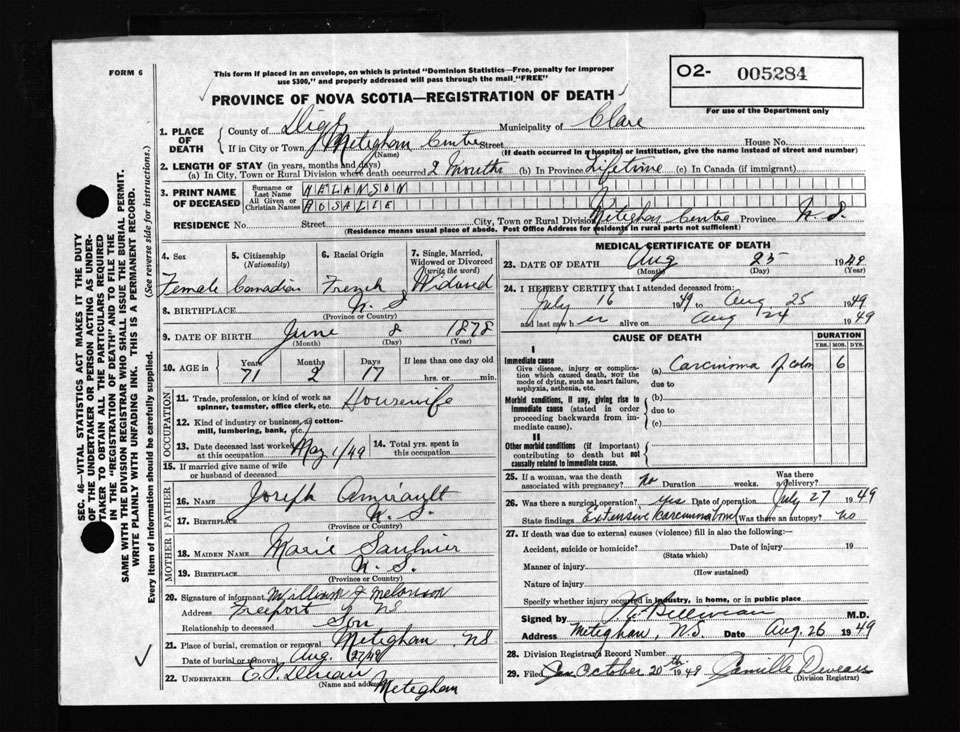 FORM 6
This form if placed in an envelope, on which is printed "Dominion Statistics—Free, penalty for improper
use $300," and properly addressed will pass through the mail "FREE"
O2- 005284
For use of the Department only
PROVINCE OF NOVA SCOTIA—REGISTRATION OF DEATH
1. PLACE OF DEATH
County of Digby Municipality of Clare
If in City or Town Meteghan Centre Street House No.
(Name) (If death occurred in a hospital or institution, give the name instead of street and number)
2. LENGTH OF STAY (in years, months and days)
(a) In City, Town or Rural Division where death occurred 2 Months (b) In Province Lifetime (c) In Canada (if immigrant)
3. PRINT NAME OF DECEASED
Surname or Last Name MELANSON
All Given or Christian Names ROSALIE
RESIDENCE No. Street City, Town or Rural Division Meteghan Centre Province N.S.
(Residence means usual place of abode. Post Office Address for residents in rural parts not sufficient)
4. Sex Female
5. Citizenship (Nationality) Canadian
6. Racial Origin French
7. Single, Married, Widowed or Divorced (write the word) Widowed
8. BIRTHPLACE N.S
(Province or Country)
9. DATE OF BIRTH June 8 1878
(Month) (Day) (Year)
10. AGE in Years 71 Months 2 Days 17 If less than one day old hrs. or min.
OCCUPATION
11. Trade, profession, or kind of work as spinner, teamster, office clerk, etc. Housewife
12. Kind of industry or business, as cotton-mill, lumbering, bank, etc.
13. Date deceased last worked at this occupation May 1/49
14. Total yrs. spent in this occupation
15. If married give name of wife or husband of deceased
FATHER
16. NAME Joseph Amirault
17. BIRTHPLACE N.S.
(Province or Country)
MOTHER
18. MAIDEN NAME Marie Saulnier
19. BIRTHPLACE N.S.
(Province or Country)
20. Signature of informant William J Melanson
Address Freeport NS
Relationship to deceased Son
21. Place of burial, cremation or removal Meteghan NS
Date of burial or removal Aug. 27/49
22. UNDERTAKER
(Name and address) Meteghan
MEDICAL CERTIFICATE OF DEATH
23. DATE OF DEATH Aug 25 1949
(Month) (Day) (Year)
24. I HEREBY CERTIFY that I attended deceased from:
July 16 1949 to Aug. 25 1949
and last saw her alive on Aug 24 1949
CAUSE OF DEATH
DURATION
YRS. MOS. DYS.
I
Immediate cause
Give disease, injury or complication which caused death, NOT the mode of dying, such as heart failure, asphyxia, asthenia, etc.
(a) Carcinoma of colon 6
due to
Morbid conditions, if any, giving rise to immediate cause (stated in order proceeding backwards from immediate cause).
(b)
due to
(c)
II
Other morbid conditions (if important) contributing to death but not causally related to immediate cause.
25. If a woman, was the death associated with pregnancy? No Duration weeks. Was there a delivery?
26. Was there a surgical operation? yes Date of operation July 27 1949
State findings Extensive carcinoma Was there an autopsy? no
27. If death was due to external causes (violence) fill in also the following:—
Accident, suicide or homicide? Date of injury 19
(State which)
Manner of injury
(How sustained)
Nature of injury
Specify whether injury occurred in industry, in home, or in public place
Signed by M.D.
Address Meteghan, N.S. Date Aug. 26 1949
28. Division Registrar's Record Number
29. Filed October 20th 1948 Camille
(Division Registrar)
SEC. 46—VITAL STATISTICS ACT MAKES IT THE DUTY
OF THE UNDERTAKER OR PERSON ACTING AS UNDER-
TAKER TO OBTAIN ALL THE PARTICULARS REQUIRED
IN THE "REGISTRATION OF DEATH" AND TO FILE THE
SAME WITH THE DIVISION REGISTRAR WHO SHALL ISSUE THE BURIAL PERMIT.
WRITE PLAINLY WITH UNFADING INK. THIS IS A PERMANENT RECORD.
Every item of information should be carefully supplied. (See reverse side for instructions.)